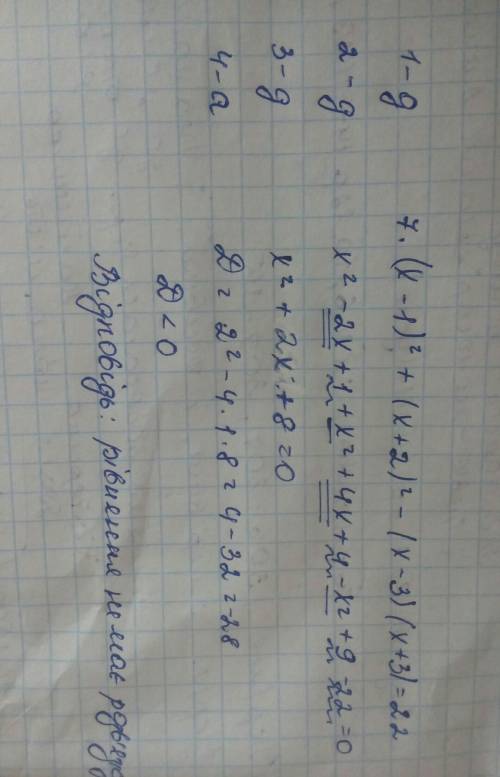 1 - g
2 - g
3 - g
4 - a
7. (x - 1)² + (x + 2)² - (x - 3)(x + 3) = 22
x² - 2x + 1 + x² + 4x + 4 - x² + 9 - 22 = 0
x² + 2x + 8 = 0
D = 2² - 4 · 1 · 8 = 4 - 32 = -28
D < 0
Відповідь: рівняння немає